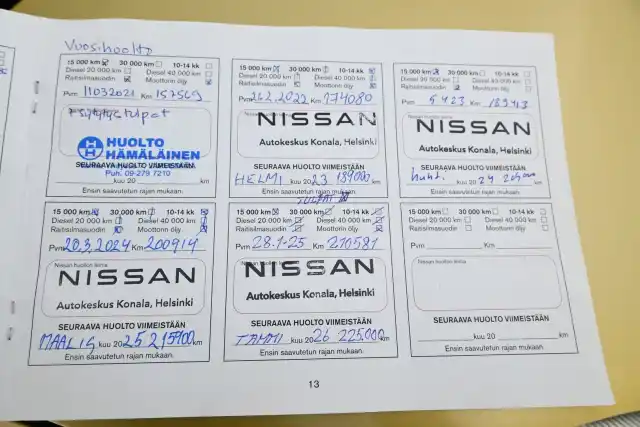 Vuosihuolto
15 000 km 30 000 km 10-14 kk
Diesel 20 000 km Diesel 40 000 km
Raitisilmasuodin Moottorin öljy
Pvm 11032021 Km 157569
HUOLTO
HÄMÄLÄINEN
SEURAAVA HUOLTO VIIMEISTÄÄN
Puh. 09-279 7210
kuu 20 km
Ensin saavutetun rajan mukaan.
15 000 km 30 000 km 10-14 kk
Diesel 20 000 km Diesel 40 000 km
Raitisilmasuodin Moottorin öljy
Pvm 26.2.2022 Km 174080
NISSAN
Autokeskus Konala, Helsinki
SEURAAVA HUOLTO VIIMEISTÄÄN
HELMI kuu 2023 189000 km
Ensin saavutetun rajan mukaan.
15 000 km 30 000 km 10-14 kk
Diesel 30 000 km Diesel 40 000 km
Raitisilmasuodin Moottorin öljy
Pvm 5 4 23 Km
NISSAN
Autokeskus Konala, Helsinki
SEURAAVA HUOLTO VIIMEISTÄÄN
huht. kuu 20 24 km
Ensin saavutetun rajan mukaan.
15 000 km 30 000 km 10-14 kk
Diesel 20 000 km Diesel 40 000 km
Raitisilmasuodin Moottorin öljy
Pvm 20.3.2024 Km 200914
Nissan huollon leima
NISSAN
Autokeskus Konala, Helsinki
SEURAAVA HUOLTO VIIMEISTÄÄN
MAALIS kuu 2025 215900 km
Ensin saavutetun rajan mukaan.
15 000 km 30 000 km 10-14 kk
Diesel 20 000 km Diesel 40 000 km
Raitisilmasuodin Moottorin öljy
Pvm 28.1-25 Km 210581
NISSAN
Autokeskus Konala, Helsinki
SEURAAVA HUOLTO VIIMEISTÄÄN
TAMMI kuu 2026 225.000 km
Ensin saavutetun rajan mukaan.
15 000 km 30 000 km 10-14 kk
Diesel 20 000 km Diesel 40 000 km
Raitisilmasuodin Moottorin öljy
Pvm Km
Nissan huollon leima
SEURAAVA HUOLTO VIIMEISTÄÄN
kuu 20 km
Ensin saavutetun rajan mukaan.
13